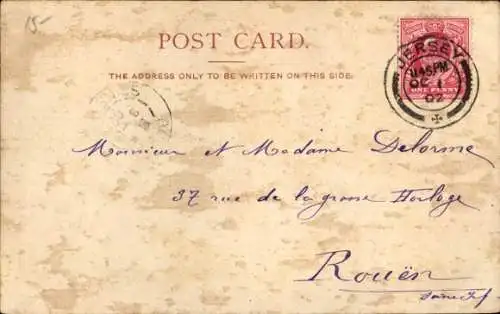 15-
POST CARD.
THE ADDRESS ONLY TO BE WRITTEN ON THIS SIDE.
JERSEY
11.45PM
OC 1
02
ONE PENNY
Monsieur et Madame Delorme
37 rue de la grosse Horloge
Rouën